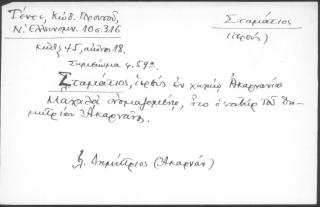 Γέντε, Κώδ. Προντοῦ,
Ν. Ἑλληνομν. 10 σ. 316
Σταμάτιος
(ἱερεύς)
Κώδ. 45, αἰῶνος 18.
Σημείωμα φ. 59α.
Σταμάτιος, ἱερεὺς ἐν χωρίῳ Ἀκαρνανίας
Μαχαλᾶ ὀνομαζομένῳ, ὅτο ὁ πατὴρ τοῦ Δη-
μητρίου Ἀκαρνᾶνος.
Δημήτριος (Ἀκαρνάν)